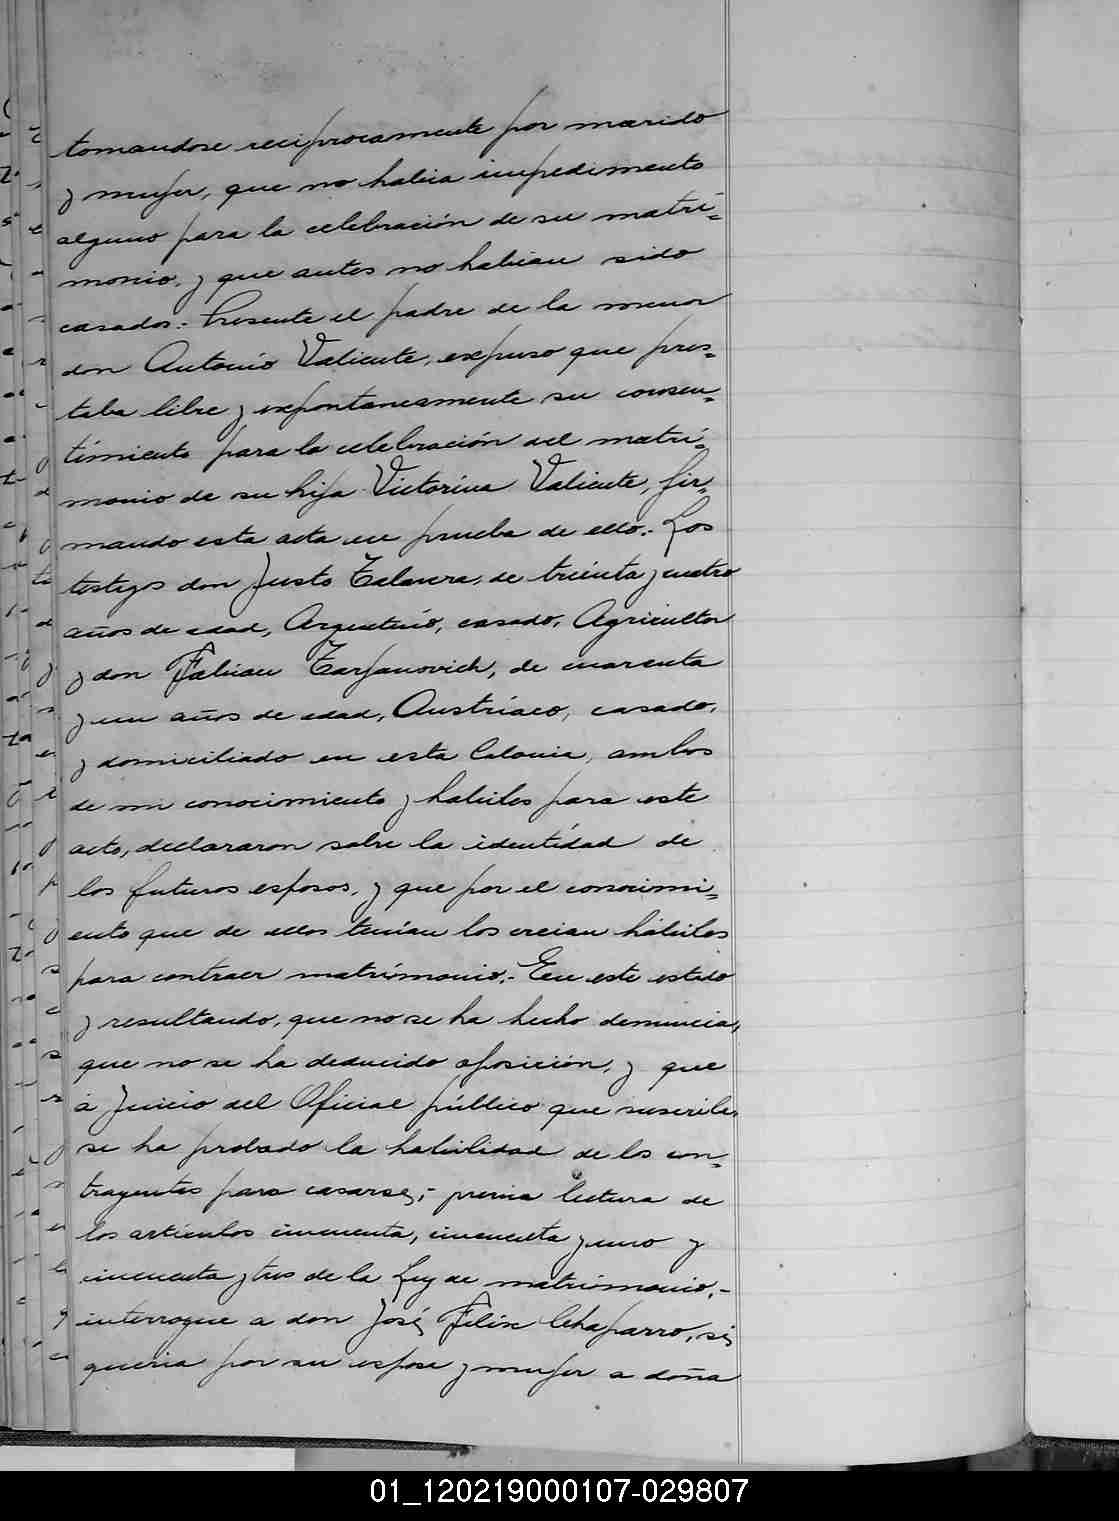 tomandose reciprocamente por marido
y mujer, que no habia impedimento
alguno para la celebración de su matri=
monio, y que antes no habian sido
casados.- Presente el padre de la menor
don Antonio Valiente, expuso que pres=
taba libre y expontaneamente su consen=
timiento para la celebración del matri=
monio de su hija Victorina Valiente, fir=
mando esta acta en prueba de ello.- Los
testigos don Justo Talavera, de treinta y cuatro
años de edad, Argentino, casado, Agricultor
y don Fabian Tarjanovich, de cuarenta
y un años de edad, Austríaco, casado,
y domiciliado en esta Colonia, ambos
de mi conocimiento y habiles para este
acto, declararon sobre la identidad de
los futuros esposos, y que por el conocimi=
ento que de ellos tenían los creian hábiles
para contraer matrimonio.- En este estado
y resultando, que no se ha hecho denuncia,
que no se ha deducido oposición, y que
á juicio del Oficial público que suscribe,
se ha probado la habilidad de los con=
trayentes para casarse,- previa lectura de
los artículos cincuenta, cincuenta y uno y
cincuenta y tres de la Ley de matrimonio,-
interrogue a don José Felix Chaparro, si
queria por su esposa y mujer a doña
01_120219000107-029807